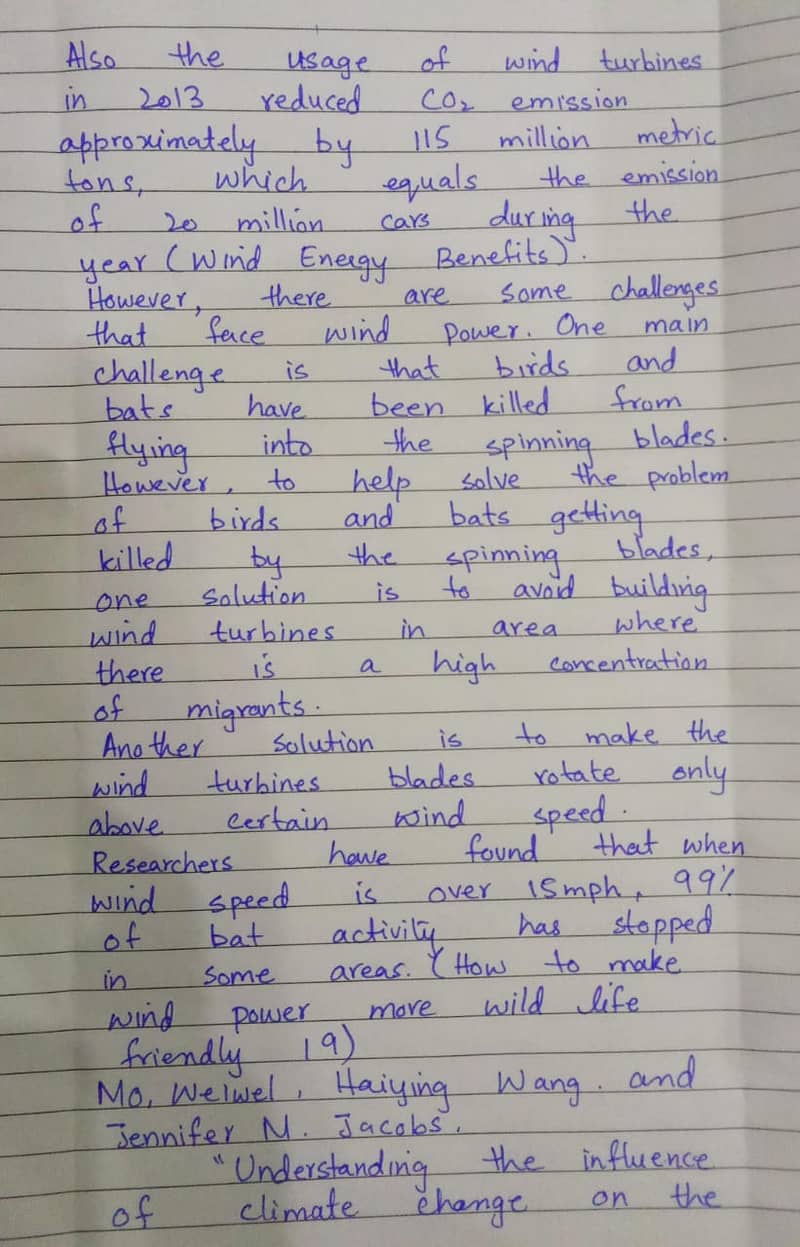 Also the usage of wind turbines
in 2013 reduced CO₂ emission
approximately by 115 million metric
tons, which equals the emission
of 20 million cars during the
year (Wind Energy Benefits).
However, there are some challenges
that face wind power. One main
challenge is that birds and
bats have been killed from
flying into the spinning blades.
However, to help solve the problem
of birds and bats getting
killed by the spinning blades,
one solution is to avoid building
wind turbines in area where
there is a high concentration
of migrants.
Another solution is to make the
wind turbines blades rotate only
above certain wind speed.
Researchers have found that when
wind speed is over 15mph, 99%
of bat activity has stopped
in some areas. (How to make
wind power more wild life
friendly 19)
Mo, Weiwel, Haiying Wang. and
Jennifer M. Jacobs.
"Understanding the influence
of climate change on the